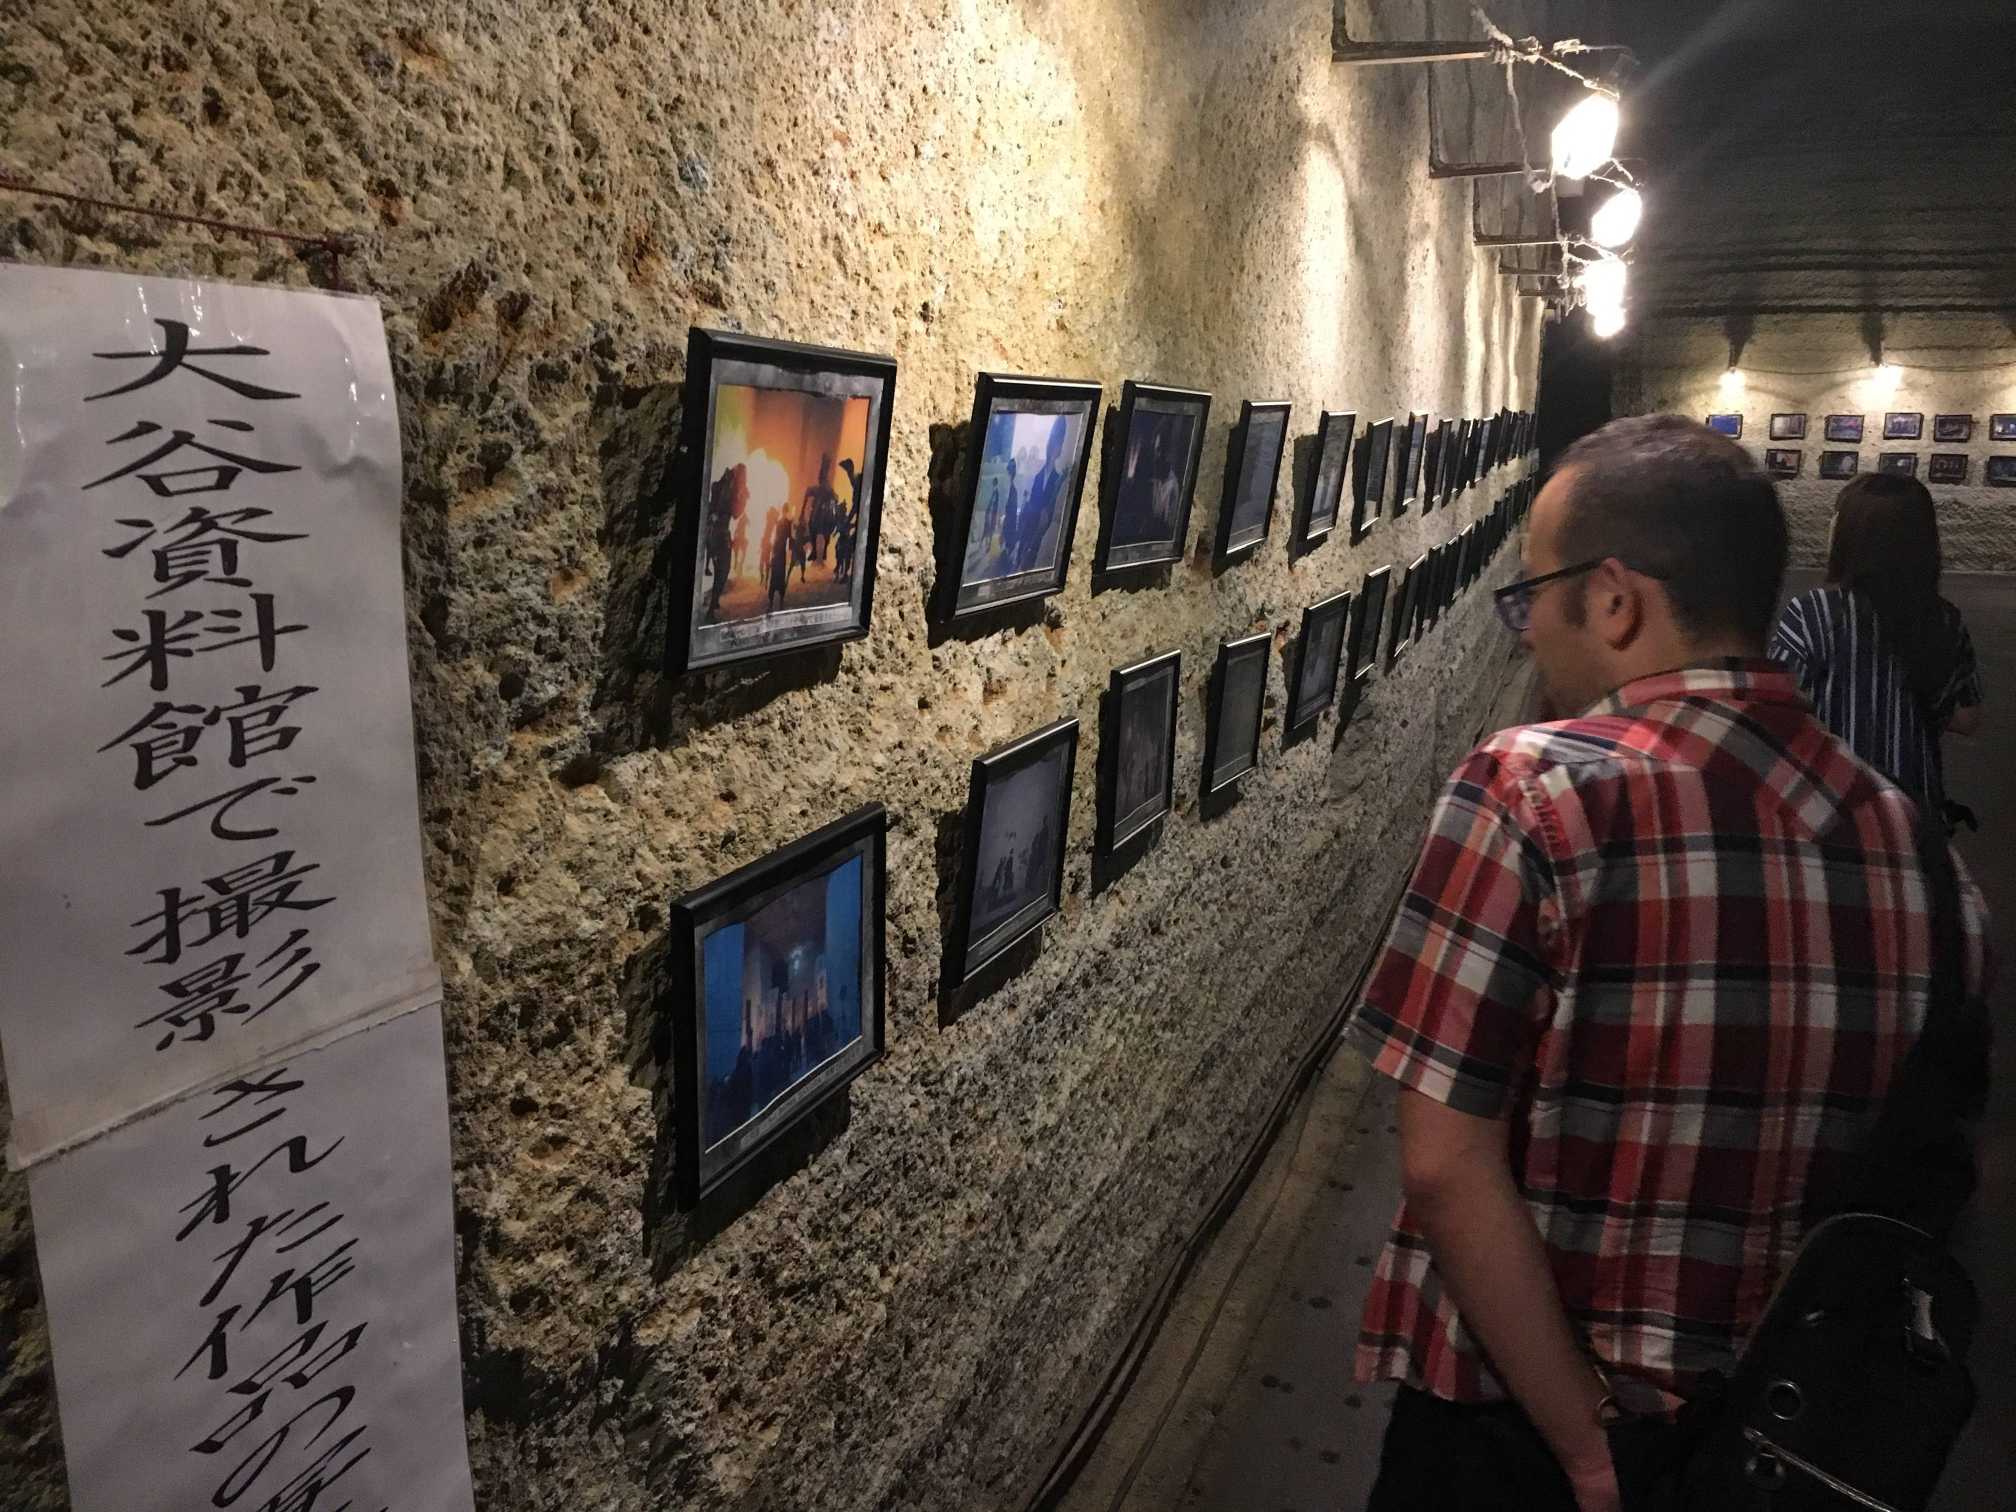 大谷資料館で撮影
された作品の